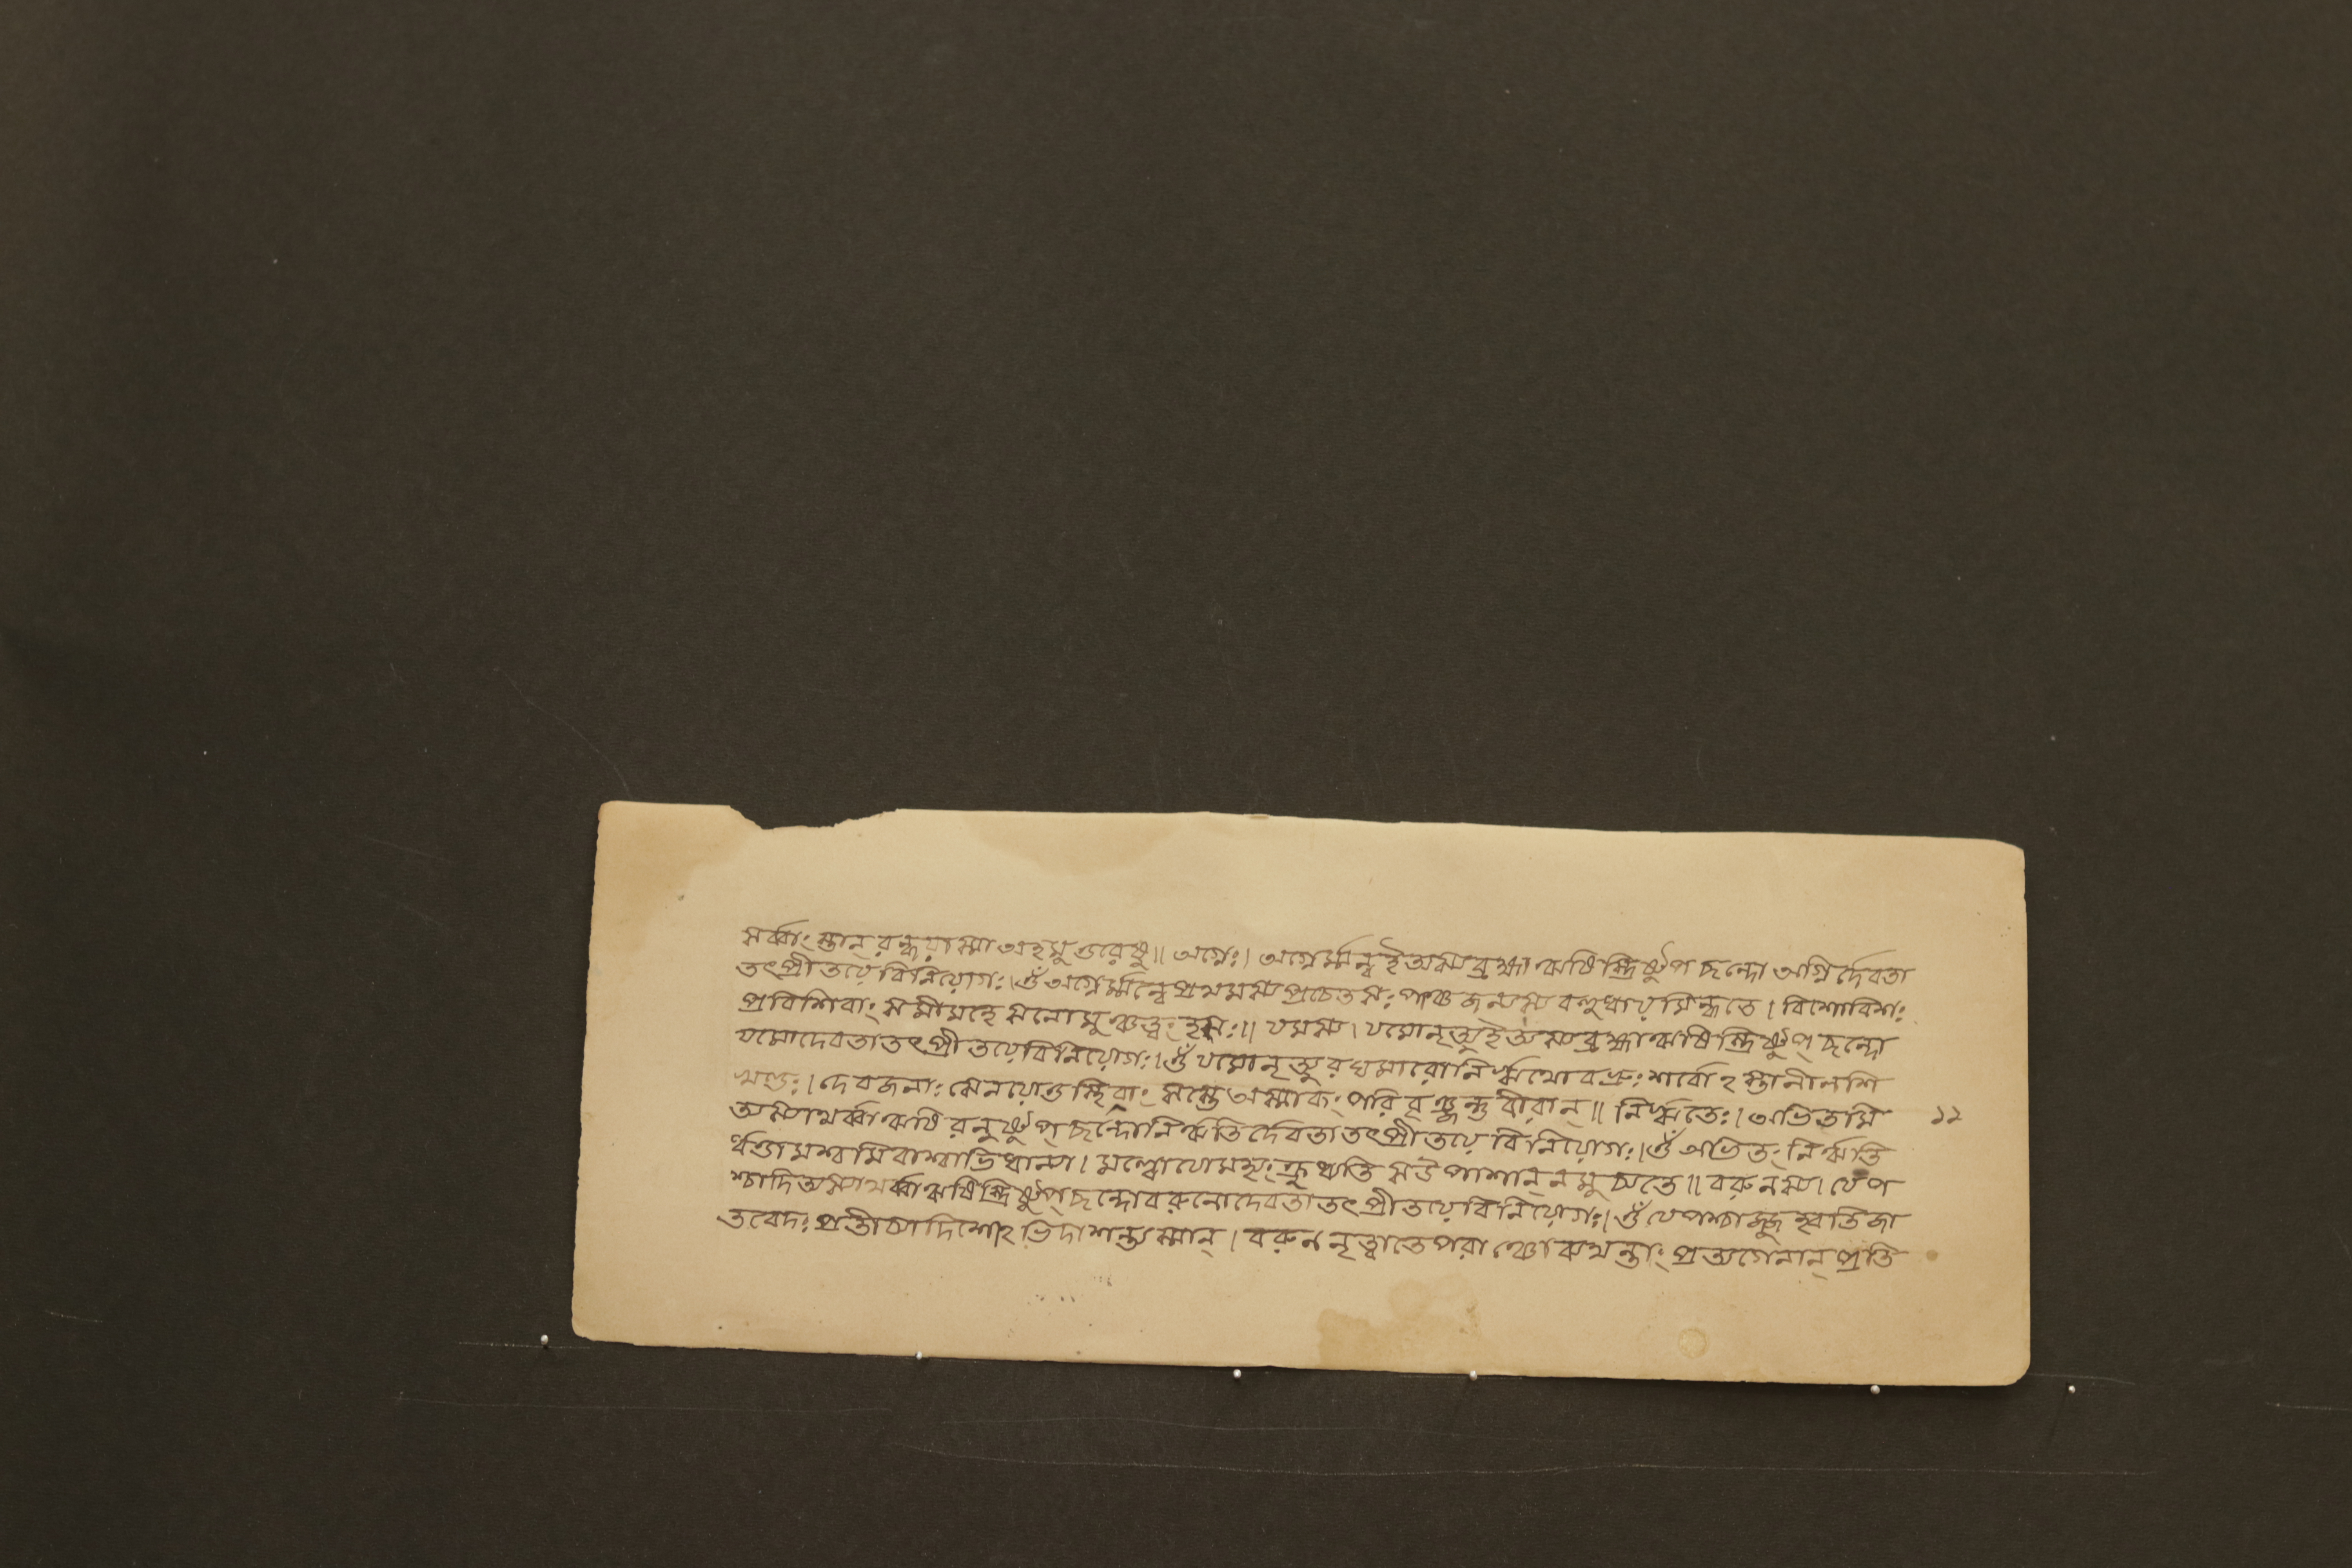 সর্ব্বাংস্তান্ রন্ধয়াস্মা অহমুত্তরেষু॥ অগ্নেঃ। অগ্নের্ম্মন্বই অস্য ব্রহ্মা ঋষিস্ত্রিষ্টুপ ছন্দো অগ্নির্দেবতা
তৎপ্রীতয়ে বিনিয়োগঃ। ওঁ অগ্নের্ম্মন্বে প্রথমস্য প্রচেতসঃ পাঞ্চজন্যস্য বহুধাযমিন্ধতে। বিশোবিশঃ
প্রবিশিবাংসমীমহে সনোমুঞ্চত্বংহসঃ॥ যমস্য। যমোনৃত্যুই অস্য ব্রহ্মাঋষিস্ত্রিষ্টুপ্ ছন্দো
যমোদেবতাতৎপ্রীতয়ে বিনিয়োগঃ। ওঁ যমোনৃত্যুরঘমারোনির্ঋথোবভ্রুঃ শর্বোঽস্তানীলশি
খণ্ডঃ। দেবজনাঃ সেনয়োত্তস্থিবাংসস্তে অস্মাকং পরিবৃঞ্জন্তু বীরান্॥ নির্ঋতেঃ। অভিতমি
অস্যাথর্ব্বাঋষিরনুষ্টুপ্ ছন্দোনির্ঋতিদেবতা তৎপ্রীতয়ে বিনিয়োগঃ। ওঁ অভিতং নির্ঋতি
র্ধত্তামশ্বমিবাশ্বাভিধান্যা। মল্বোযোমহ্যংক্রুধ্যতি সউপাশান্ নমুচ্যতে॥ বরুনস্য। যেপ
শ্চাদিঅস্যাথর্ব্বাঋষিস্ত্রিষ্টুপ্ ছন্দোবরুনোদেবতা তৎপ্রীতয়ে বিনিয়োগঃ। ওঁ যেপশ্চাজ্জুহ্বতিজা
তবেদঃ প্রতীচ্যাদিশোঽভিদাশন্ত্যস্মান্। বরুন নৃত্বাতেপরাঞ্চোব্যথন্তাং প্রত্যগেনান্ প্রতি
১২